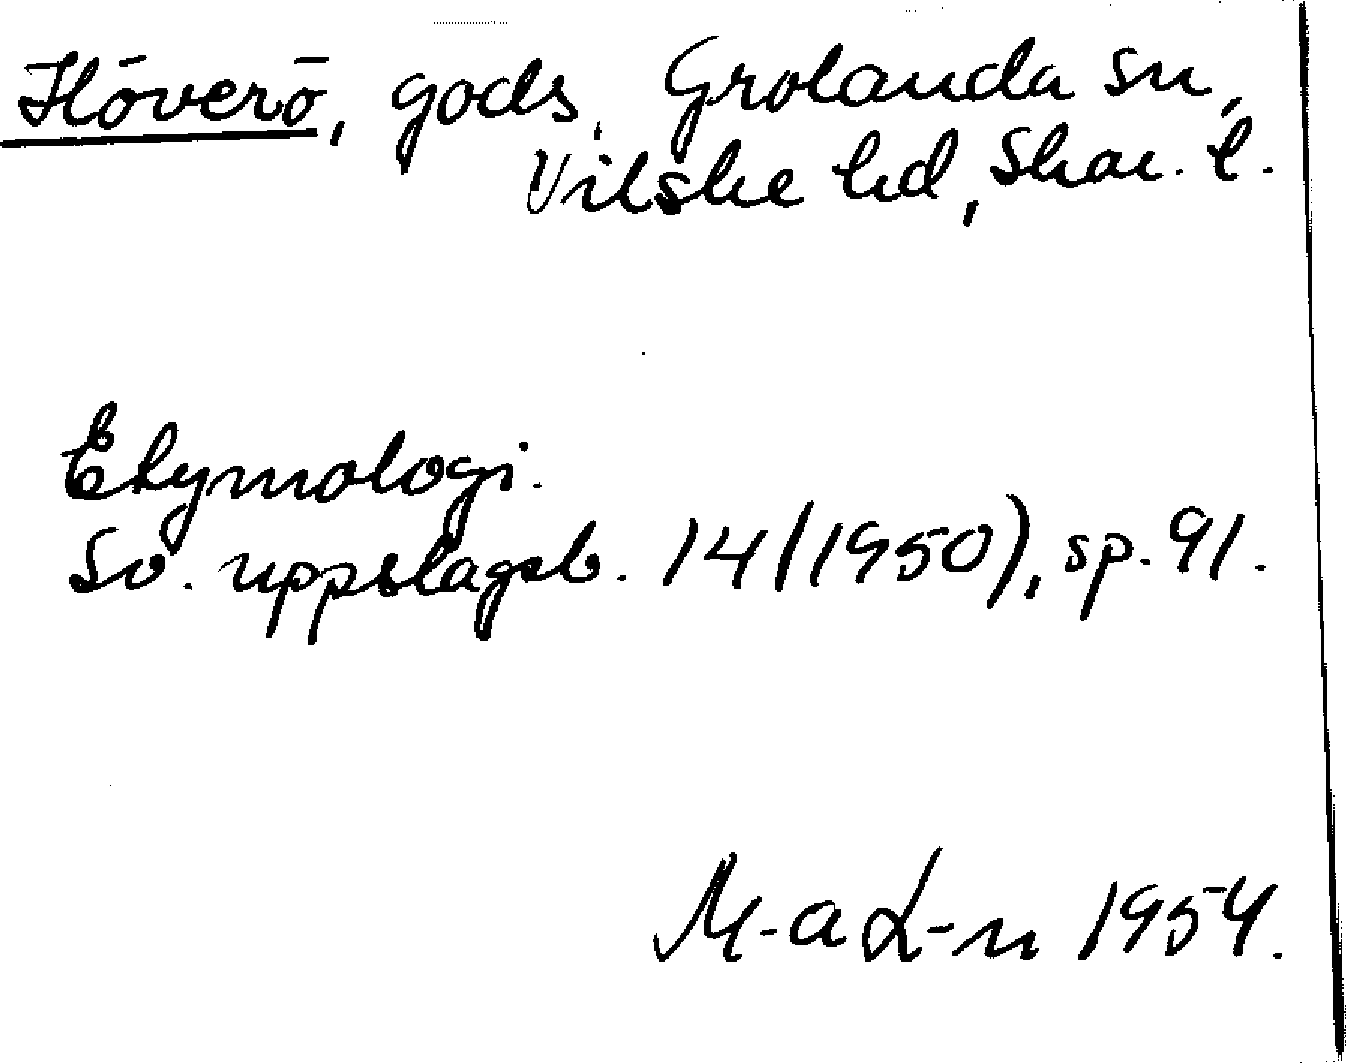 Höverö, gods, Grolanda sn,
Vilske hd, Skar. l.
Etymologi.
Sv. uppslagsb. 14 (1950), sp. 91.
M-a L-n 1954.